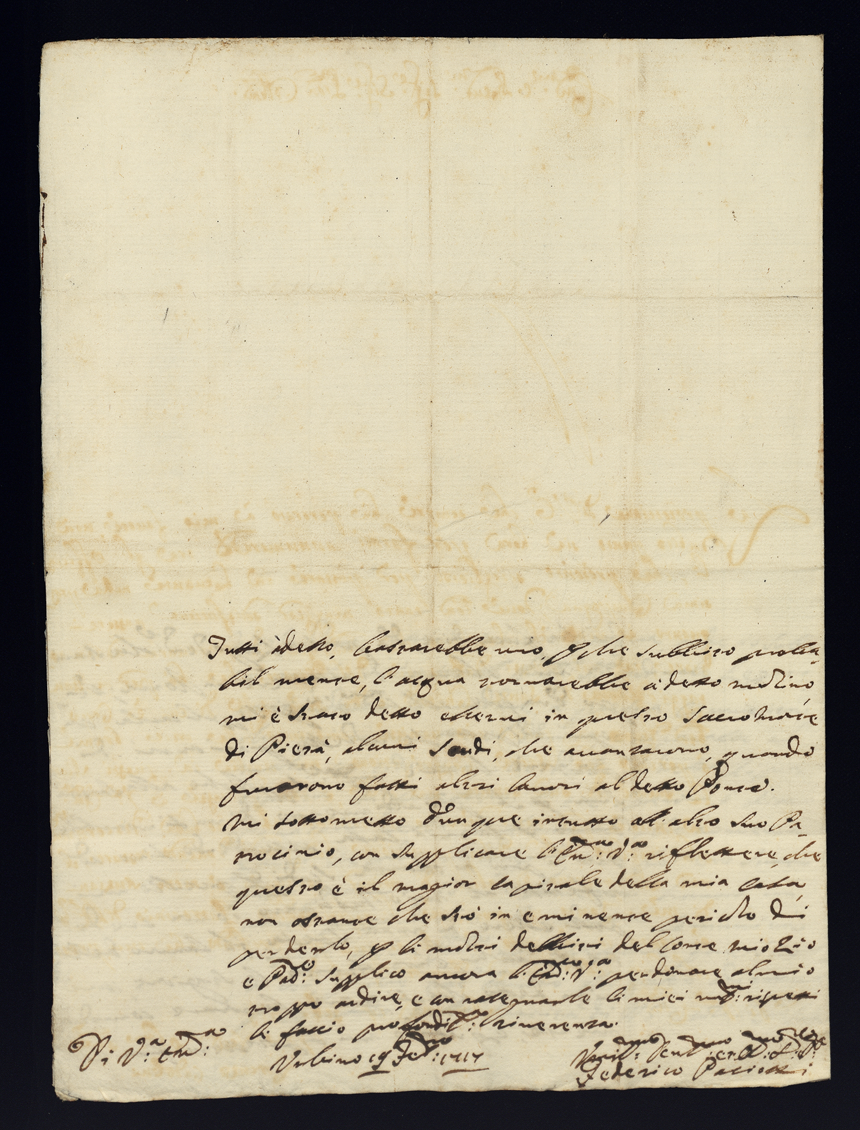 Tutti àdetto, bastarebbero, p che subbito proba
bil mente, l'acqua tornarebbe à detto molino
mi è stato detto esservi in questo Sacro Monte
di Pietà, alcuni Scudi, che avanzarono, quando
furorono fatti altri lavori al detto Ponte.
Mi sottometto dunque in tutto all'alto suo Pa
trocinio, con supplicare l'Em:za V:a riflettere, che
questo è il maggior capitale della mia Casa,
non ostante che stò in eminente pericolo di
perderlo, p li moltri debbiti del Conte mio Zio
e Pad:e supplico ancora l'Em:za V:a perdonare al mio
troppo ardire, e con rassegnarle li miei rispetti
li faccio profondis:ma riverenza.
Di V:a Em:za
Urbino 19 Feb:o 1717
Umil:mo
Federico Paciotti